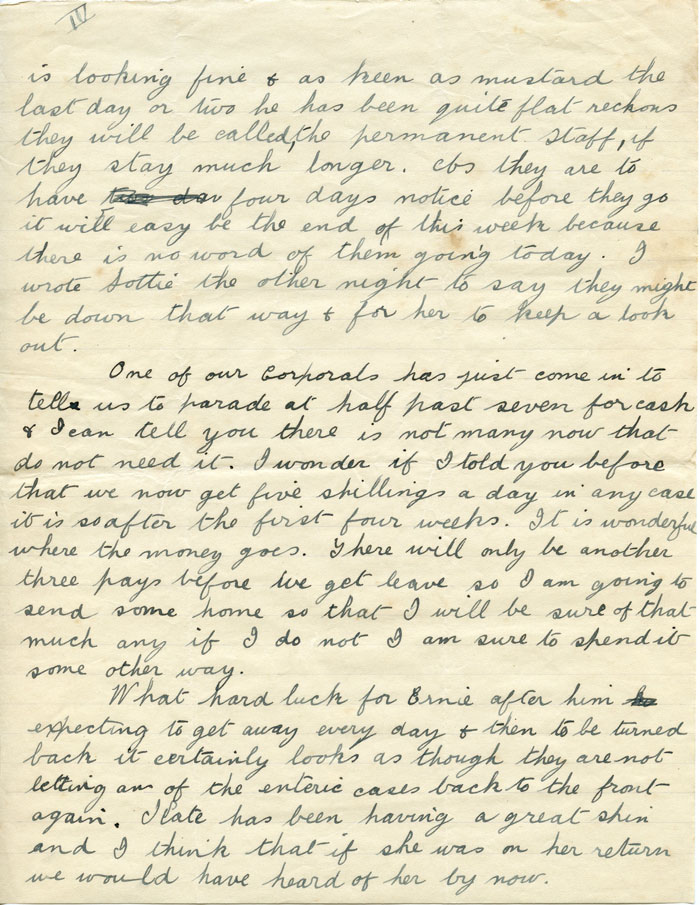 IV
is looking fine & as keen as mustard the
last day or two he has been quite flat reckons
they will be called, the permanent staff, if
they stay much longer. As they are to
have four days notice before they go
it will easy be the end of this week because
there is no word of them going today. I
wrote Lottie the other night to say they might
be down that way & for her to keep a look
out.
One of our Corporals has just come in to
tell us to parade at half past seven for cash
& I can tell you there is not many now that
do not need it. I wonder if I told you before
that we now get five shillings a day in any case
it is so after the first four weeks. It is wonderful
where the money goes. There will only be another
three pays before we get leave so I am going to
send some home so that I will be sure of that
much any if I do not I am sure to spend it
some other way.
What hard luck for Ernie after him
expecting to get away every day & then to be turned
back it certainly looks as though they are not
letting any of the enteric cases back to the front
again. Kate has been having a great
and I think that if she was on her return
we would have heard of her by now.